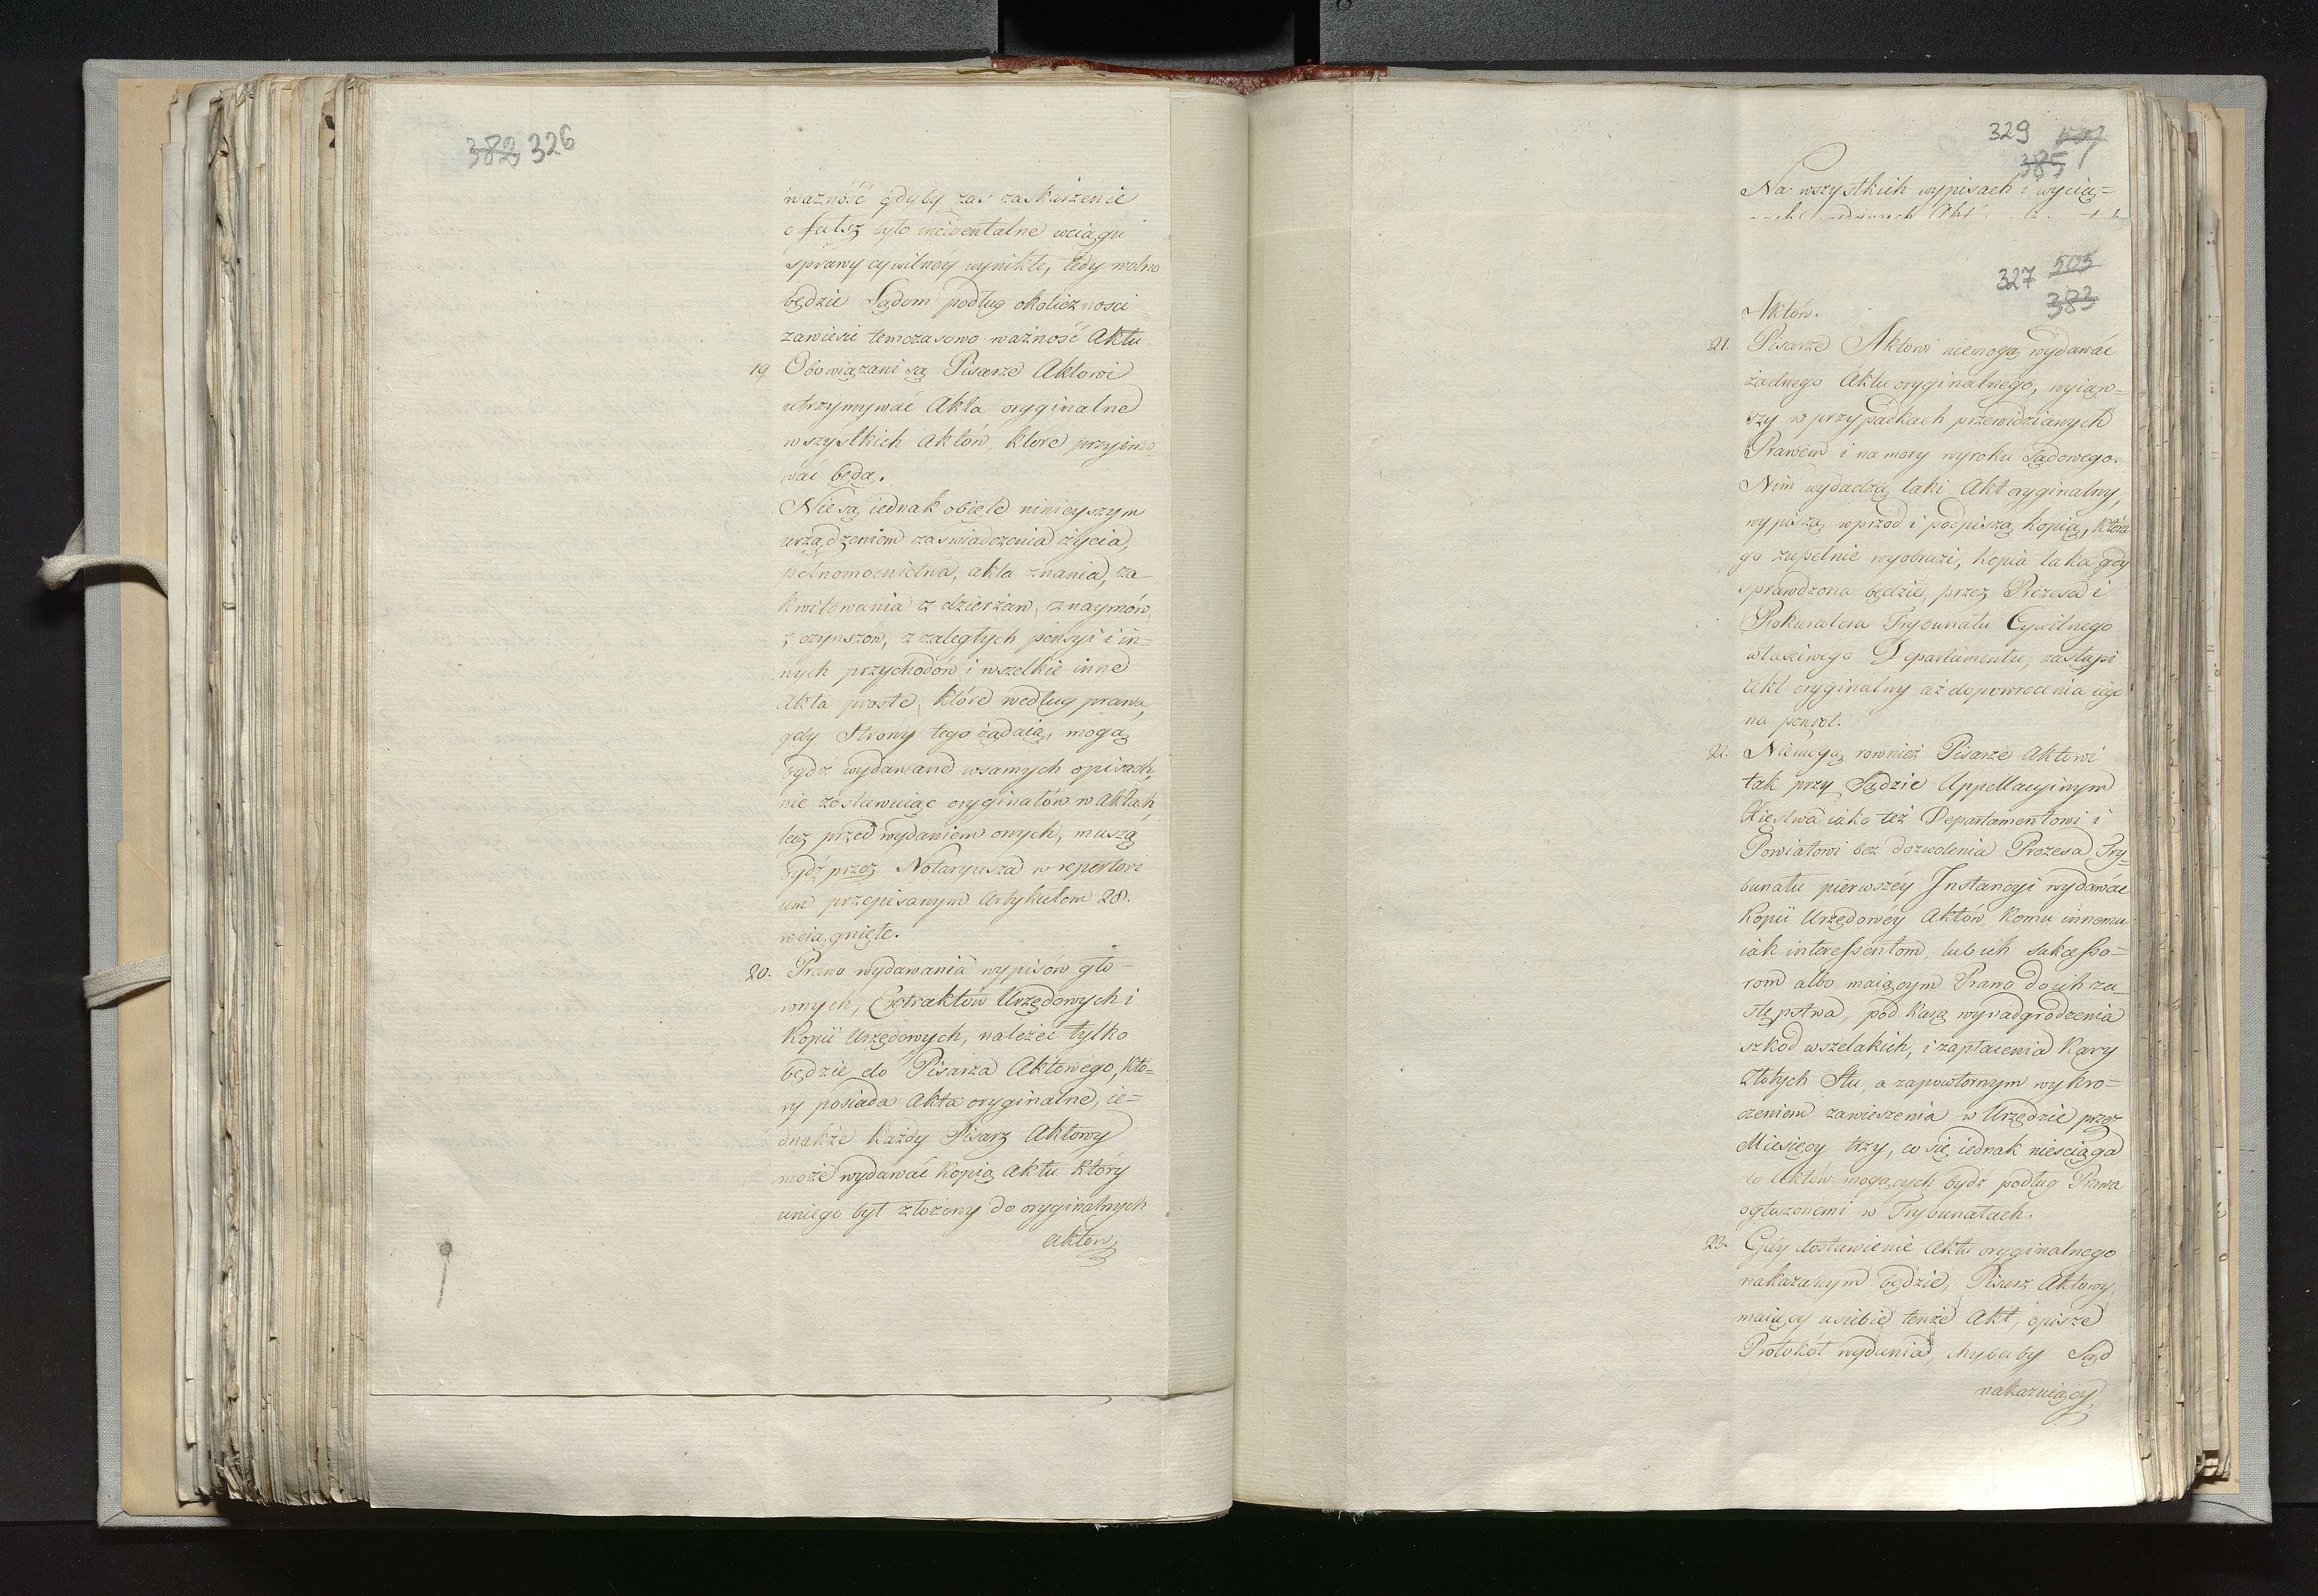 382 326
ważność gdyby zaś zaskarżenie
o fałsz było incidentalne wciągu
sprawy cywilney wynikłe, tedy wolno
będzie Sądom podług okoliczności
zawiesić temczasowo ważność Aktu
19 Obowiązani są Pisarze Aktowi
utrzymywać Akta oryginalne
wszystkich Aktów, które przyimo=
wać będą.
Nie są iednak obięte ninieyszym
urządzeniem zaświadczenia życia,
pełnomocnictwa, akta znania, za-
kwitowania z dzierżaw, z naymów,
z czynszów, z zaległych pensyi i in-
nych przychodów i wszelkie inne
Akta proste, które według prawa,
gdy Strony tego żądaią, mogą
bydź wydawane wsamych opisach,
nie zostawuiąc oryginałów w Aktach,
lecz przed wydaniem onych, muszą
bydź przez Notaryusza w repertori
um przepisanym Artykułem 28.
wciągnięte.
20. Prawo wydawania wypisów głó-
wnych, Extraktów Urzędowych i
Kopii Urzędowych, należeć tylko
będzie do Pisarza Aktowego, któ=
ry posiada Akta oryginalne, ie=
dnakże każdy Pisarz Aktowy
może wydawać kopią Aktu który
uniego był złożony do oryginalnych
aktow
329
385
Na wszystkich wypisach i wycią=
327 505
383
Aktów.
21. Pisarze Aktowi niemogą wydawać
żadnego Aktu oryginalnego, wyiąw=
szy w przypadkach przewidzianych
Prawem i na mocy wyroku Sądowego.
Nim wydadzą taki Akt oryginalny,
wypiszą wprzód i podpiszą kopią, która
go zupełnie wyobrazi, kopia taka gdy
sprawdzona będzie, przez Prezesa i
Prokuratora Trybunału Cywilnego
właściwego Departamentu, zastąpi
Akt oryginalny aż dopowrócenia iego
na powrót.
22. Niemogą rownież Pisarze Aktowi
tak przy Sądzie Appellacyinym
Xięstwa iako też Departamentowi i
Powiatowi bez dozwolenia Prezesa Try=
bunału pierwszéy Instancyi wydawać
Kopii Urzędowéy Aktów komu innemu
iak interessentom, lub ich sukcesso=
rom albo maiącym Prawo do ich za=
stępstwa, pod karą wynadgrodzenia
szkod wszelakich, i zapłacenia kary
Złotych Stu, a zapowtórnym wykro=
czeniem zawieszenia w Urzędzie przez
Miesięcy trzy, co się iednak nieściąga
do Aktów mogących bydź podług Prawa
ogłoszonemi w Trybunałach.
23. Gdy dostawienie Aktu oryginalnego
nakazanym będzie, Pisarz Aktowy
maiący usiebie tenże Akt, opisze
Protokół wydania, chybaby Sąd
nakazuiący